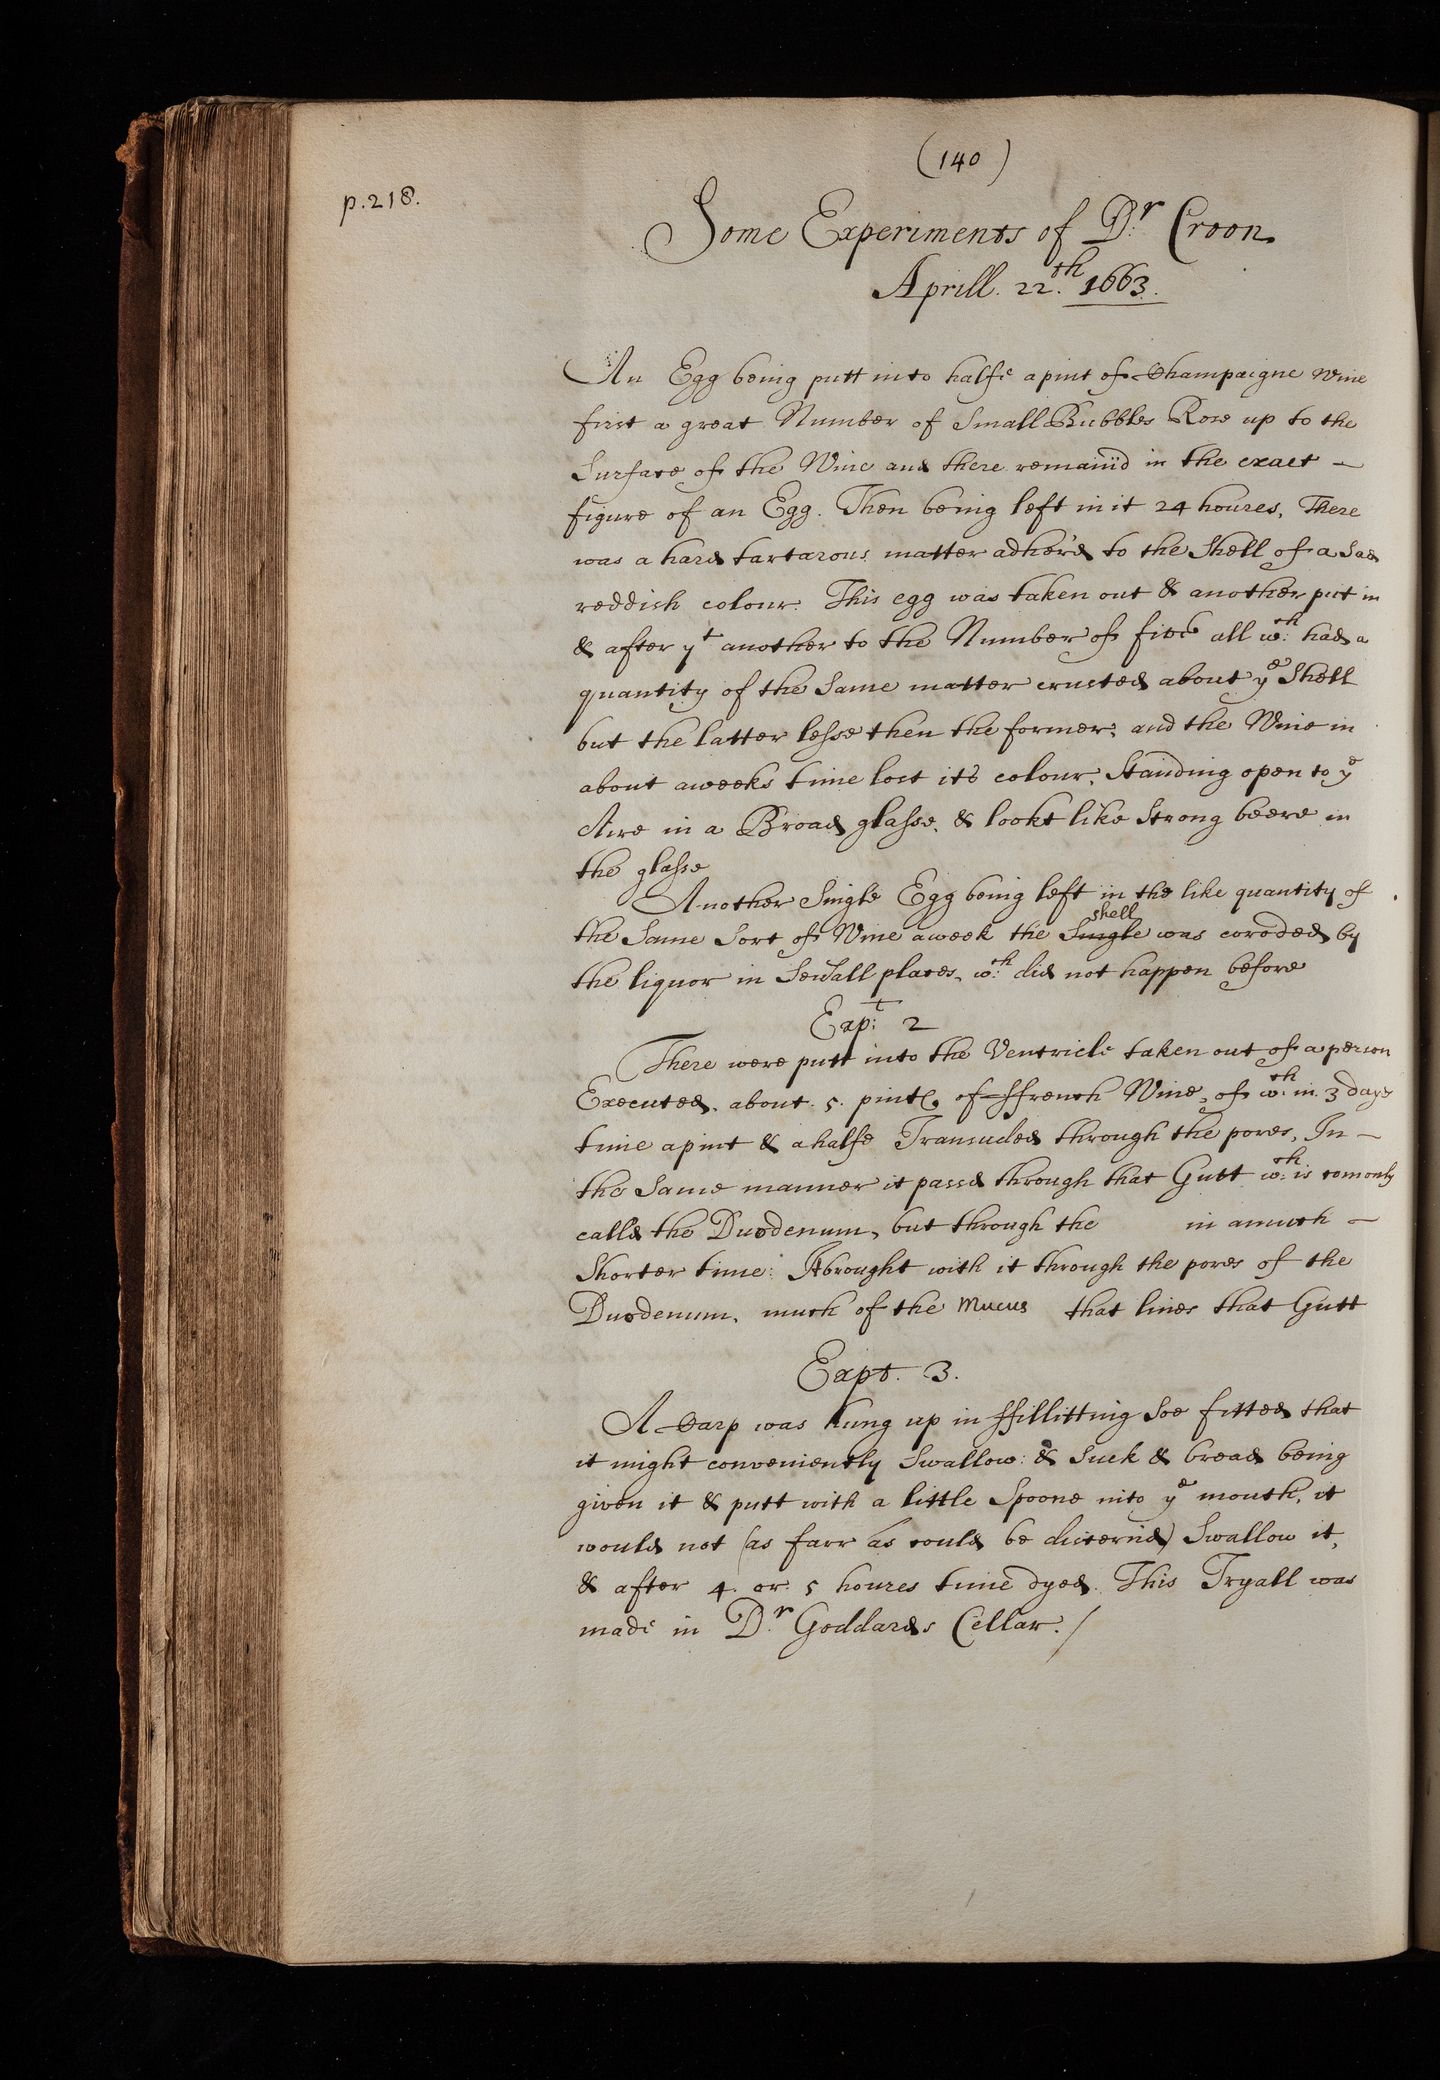 (140)
p.218.
Some Experiments of Dr. Croon.
Aprill. 22th. 1663.
An Egg being putt into halfe a pint of Champaigne Wine
first a great Number of Small Bubbles Rose up to the
Surface of the Wine and there remaind in the exact –
figure of an Egg. Then being left in it 24 houres, There
was a hard tartarous matter adher'd to the Shell of a Sad
reddish colour. This egg was taken out & another put in
& after yt another to the Number of five all wch: had a
quantity of the Same matter crusted about ye Shell
but the latter lesse then the former; and the Wine in
about a weeks time lost its colour, Standing open to ye
Aire in a Broad glasse, & lookt like Strong beere in
the glasse
Another Single Egg being left in the like quantity of
the Same Sort of Wine a week the Single shell was coroded by
the liquor in Severall places, wch: did not happen before
Expt: 2
There were putt into the Ventricle taken out of a person
Executed, about 5. pints of ffrench Wine, of wch: in 3 days
time a pint & a halfe Transuded through the pores, In –
the Same manner it passd through that Gutt wch: is comonly
calld the Duodenum, but through the in a much –
Shorter time: It brought with it through the pores of the
Duodenum, much of the Mucus that lines that Gutt
Expt. 3.
A Carp was hung up in ffillitting Soe fitted that
it might conveniently Swallow: & Suck & bread being
given it & putt with a little Spoone into ye mouth, it
would not (as farr as could be discern'd) Swallow it,
& after 4. or 5 houres time dyed. This Tryall was
made in Dr. Goddards Cellar./